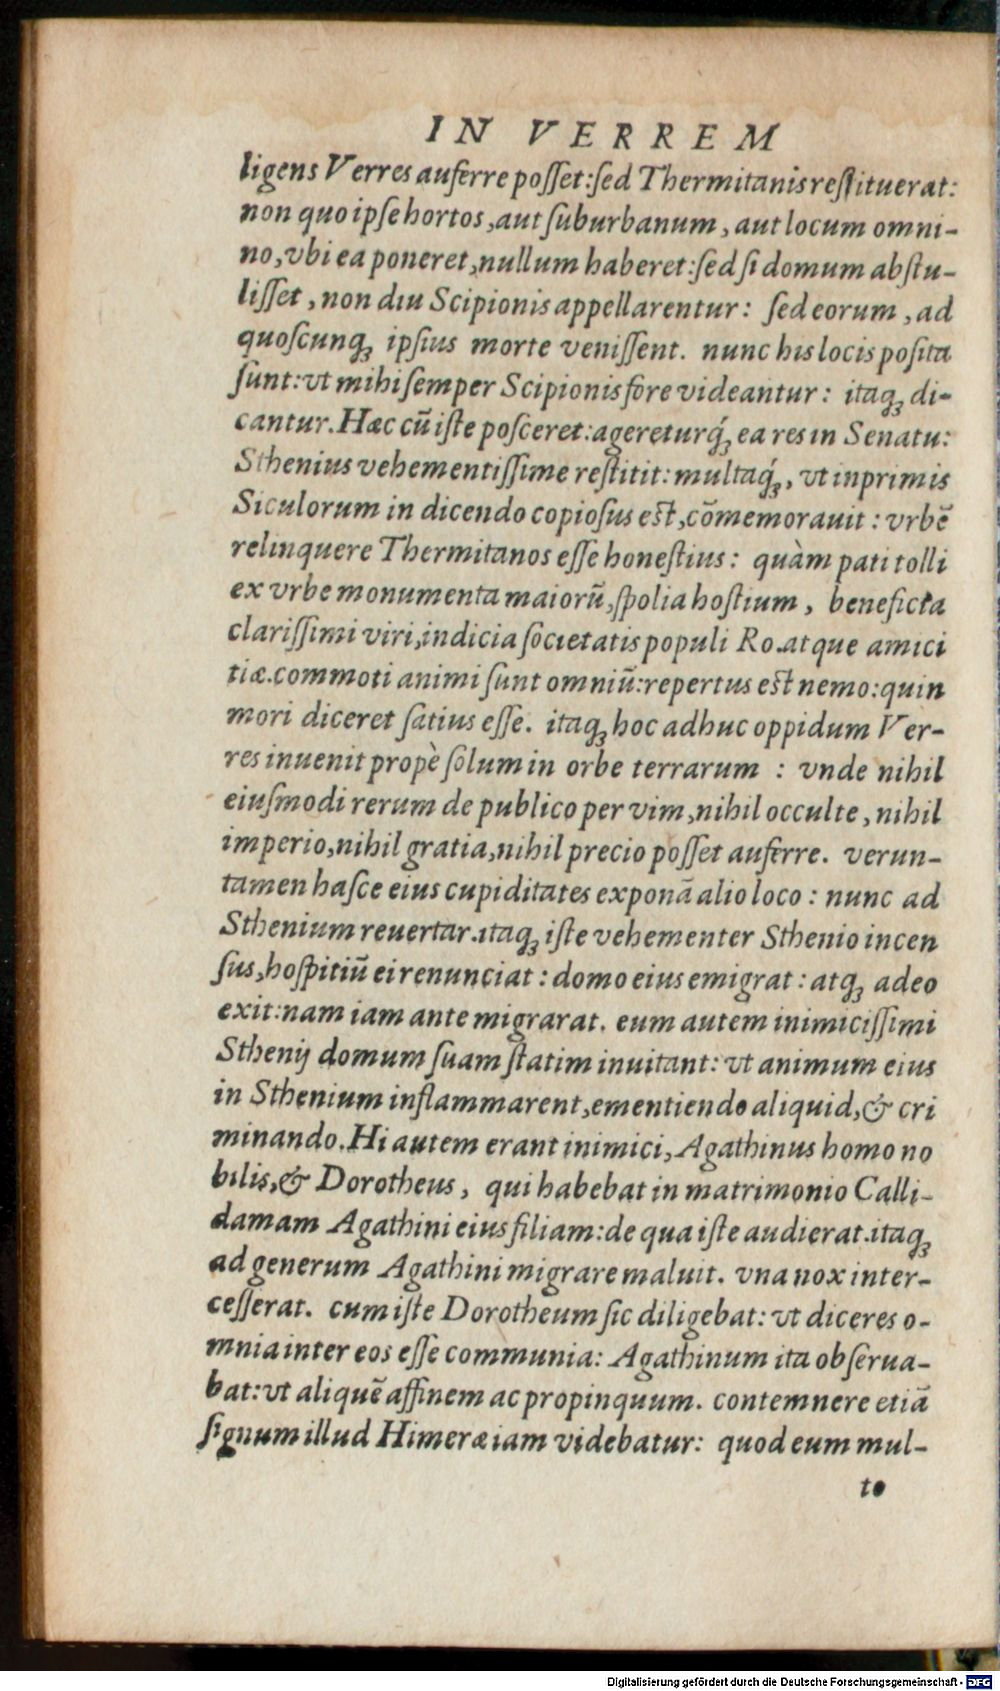 IN VERREM
ligens Verres auferre posset:sed Thermitanis restituerat:
non quo ipse hortos,aut suburbanum, aut locum omni-
no,vbi ea poneret,nullum haberet:sed si domum abstu-
lisset, non diu Scipionis appellarentur: sed eorum, ad
quoscunqꝫ ipsius morte venissent. nunc his locis posita
sunt:vt mihi semper Scipionis fore videantur: itaqꝫ di-
cantur. Hæc cū iste posceret:agereturq́ꝫ ea res in Senatu:
Sthenius vehementissime restitit:multaq́ꝫ, vt inprimis
Siculorum in dicendo copiosus est,cōmemorauit: vrbē
relinquere Thermitanos esse honestius: quàm pati tolli
ex vrbe monumenta maiorū,spolia hostium, beneficia
clarissimi viri,indicia societatis populi Ro.atque amici
tiæ.commoti animi sunt omniū:repertus est nemo:quin
mori diceret satius esse. itaqꝫ hoc adhuc oppidum Ver-
res inuenit propè solum in orbe terrarum : vnde nihil
eiusmodi rerum de publico per vim,nihil occulte, nihil
imperio,nihil gratia,nihil precio posset auferre. verun-
tamen hasce eius cupiditates exponā alio loco: nunc ad
Sthenium reuertar.itaqꝫ iste vehementer Sthenio incen
sus,hospitiū ei renunciat: domo eius emigrat: atqꝫ adeo
exit:nam iam ante migrarat. eum autem inimicissimi
Sthenij domum suam statim inuitant: vt animum eius
in Sthenium inflammarent,ementiendo aliquid,& cri
minando. Hi autem erant inimici, Agathinus homo no
bilis,& Dorotheus, qui habebat in matrimonio Calli-
damam Agathini eius filiam:de qua iste audierat.itaqꝫ
ad generum Agathini migrare maluit. vna nox inter-
cesserat. cum iste Dorotheum sic diligebat: vt diceres o-
mnia inter eos esse communia: Agathinum ita obserua-
bat:vt aliquē affinem ac propinquum. contemnere etiā
signum illud Himeræ iam videbatur: quod eum mul-
to
Digitalisierung gefördert durch die Deutsche Forschungsgemeinschaft - DFG